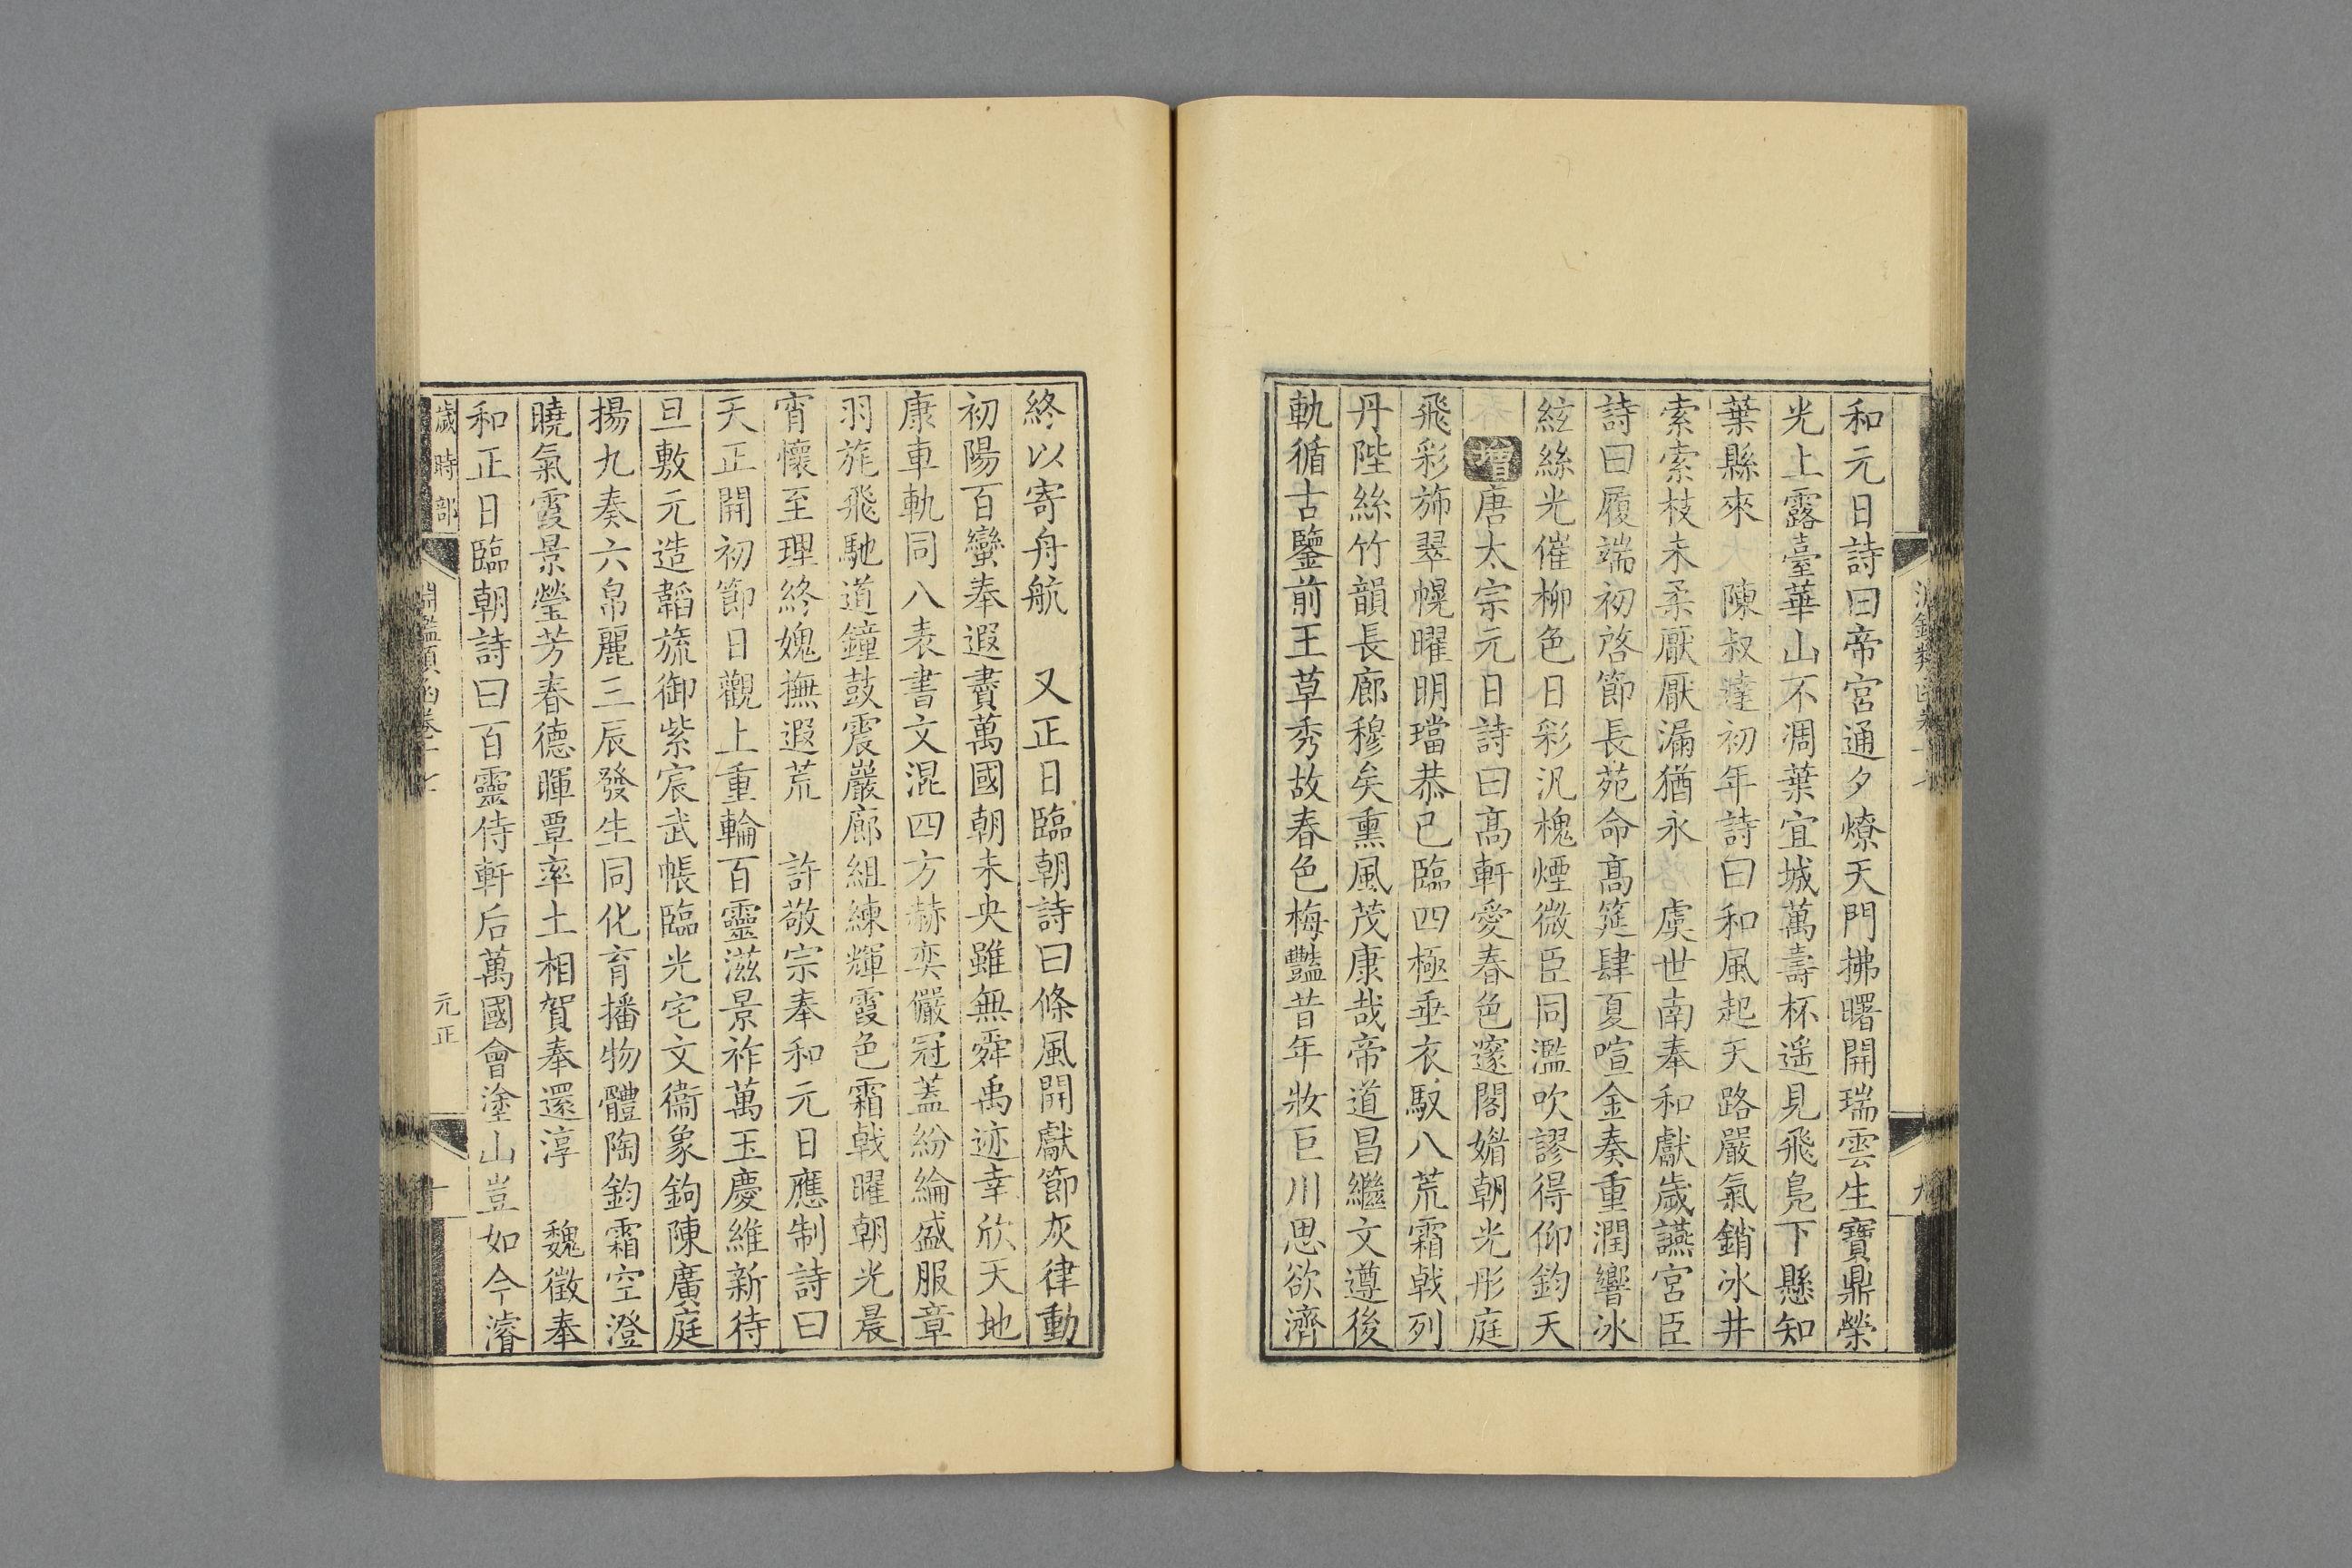 和元日詩曰帝宮通夕燎天門拂曙開瑞雲生寶鼎榮
光上露臺華山不凋葉宜城萬壽杯遥見飛鳧下懸知
葉縣來　陳叔達初年詩曰和風起天路嚴氣銷冰井
索索枝未柔厭厭漏猶永　虞世南奉和獻歲讌宮臣
詩曰履端初啓節長苑命髙筵肆夏喧金奏重潤響冰
絃絲光催柳色日彩汎槐煙微臣同濫吹謬得仰鈞天
增唐太宗元日詩曰髙軒愛春色邃閣媚朝光彤庭
飛彩斾翠幌曜明璫恭已臨四極垂衣馭八荒霜戟列
丹陛絲竹韻長廊穆矣熏風茂康哉帝道昌繼文遵後
軌循古鑒前王草秀故春色梅豔昔年妝巨川思欲濟
終以寄舟航　又正日臨朝詩曰條風開獻節灰律動
初陽百蠻奉遐賮萬國朝未央雖無舜禹迹幸欣天地
康車軌同八表書文混四方赫奕儼冠蓋紛綸盛服章
羽旄飛馳道鐘鼓震巖廊組練輝霞色霜戟曜朝光晨
宵懷至理終媿撫遐荒　許敬宗奉和元日應制詩曰
天正開初節日觀上重輪百靈滋景祚萬玉慶維新待
旦敷元造韜旒御紫宸武帳臨光宅文衞象鉤陳廣庭
揚九奏六帛麗三辰發生同化育播物體陶鈞霜空澄
曉氣霞景瑩芳春德暉覃率土相賀奉還淳　魏徵奉
和正日臨朝詩曰百靈侍軒后萬國會塗山豈如今濬
歲時部
淵鑑類函卷十七
元正
十